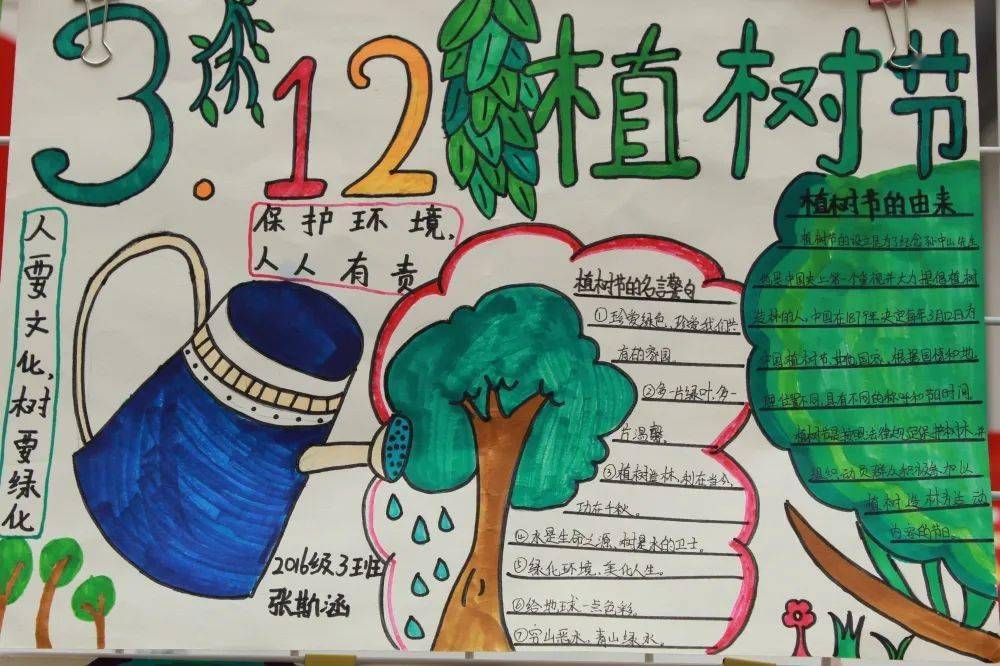 3.12 植树节
保护环境,
人人有责
人要文化,树要绿化
植树节的名言警句
①珍爱绿色,珍爱我们共
有的家园。
②多一片绿叶,多一
片温馨。
③植树造林,利在当今,
功在千秋。
④水是生命之源,树是水的卫士。
⑤绿化环境、美化人生。
⑥给地球一点色彩。
⑦穷山恶水,青山绿水。
植树节的由来
植树节的设立是为了纪念孙中山先生
他是中国史上第一个重视并大力提倡植树
造林的人,中国在1979年决定每年3月12日为
中国植树节,其他国家,根据国情和地
理位置不同,具有不同的称呼和节的时间
植树节是按照法律规定保护树林,并
组织动员群众积极参加以
植树造林为活动
内容的节日。
2016级3班
张斯涵